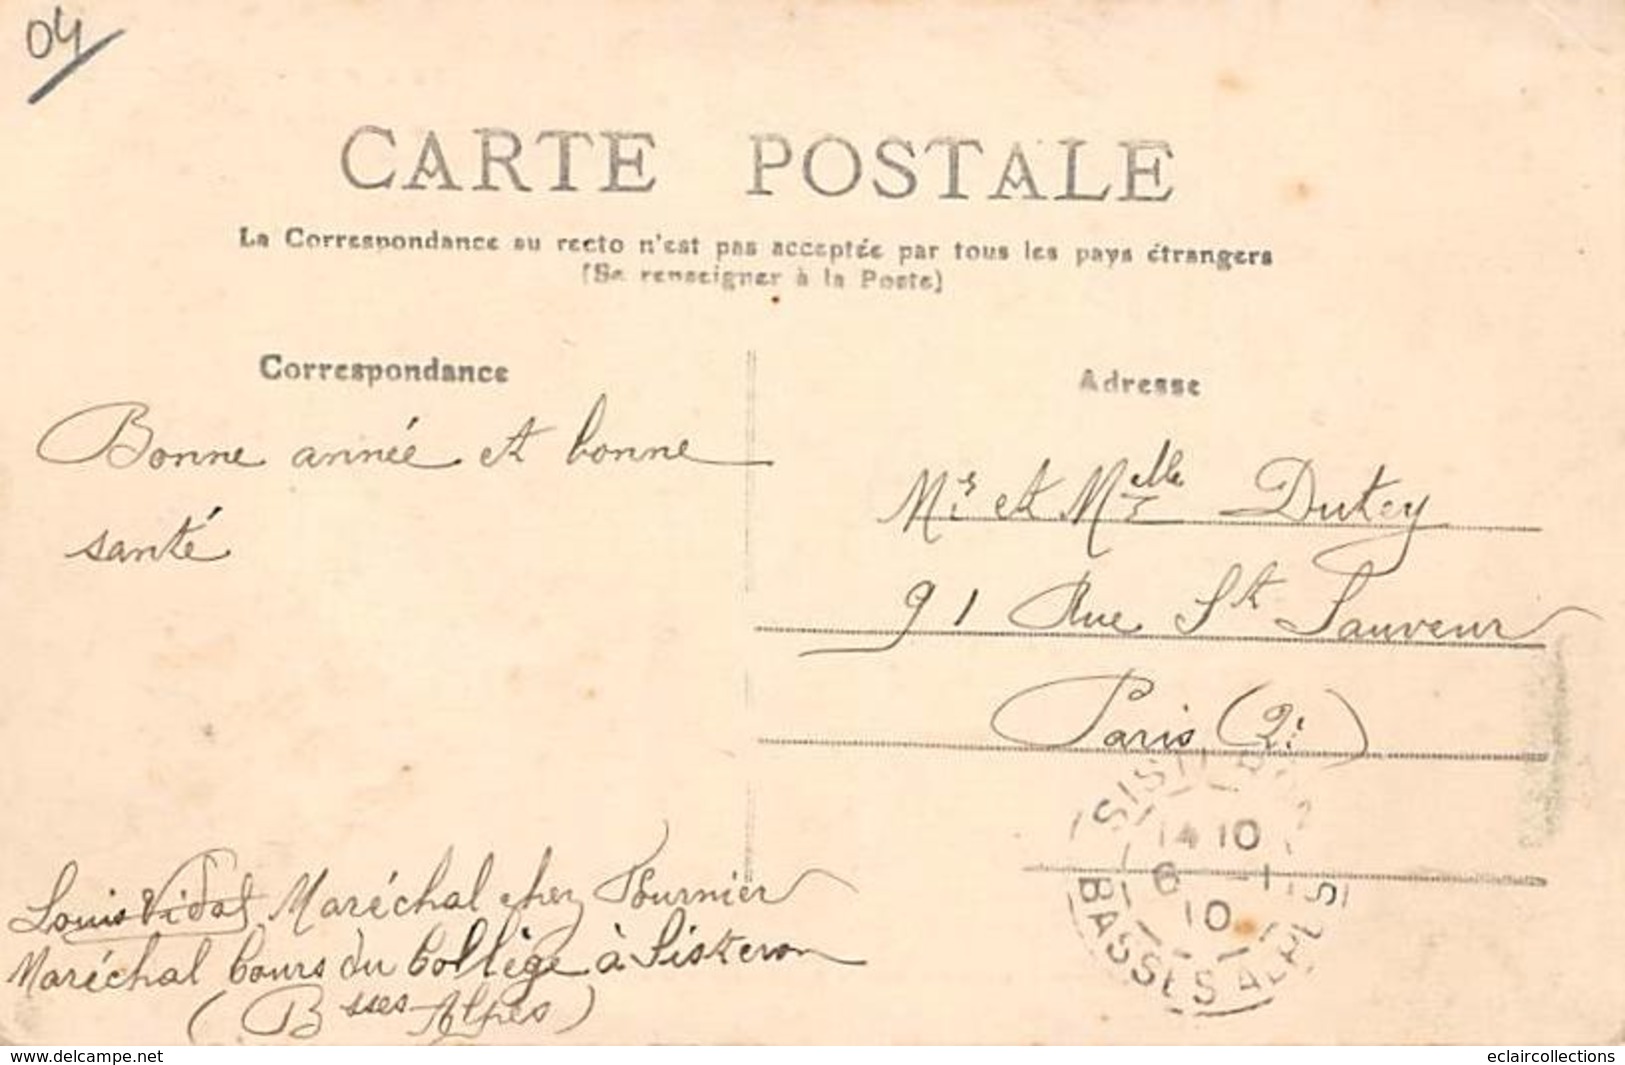 04
CARTE POSTALE
La Correspondance au recto n'est pas acceptée par tous les pays étrangers
(Se renseigner à la Poste)
Correspondance
Bonne année et bonne
santé
Louis Vidal Maréchal chez Fournier
Maréchal Cours du Collège à Sisteron
(Bsses Alpes)
Adresse
Mr et Melle Dutey
91 Rue St Sauveur
Paris (2e)
SISTERON
14 10
6 -1
10
BASSES ALPES
www.delcampe.net
eclaircollections